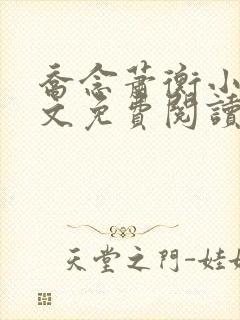 喬念蕭衡小
文免費閱讀
天堂之門-娃娃